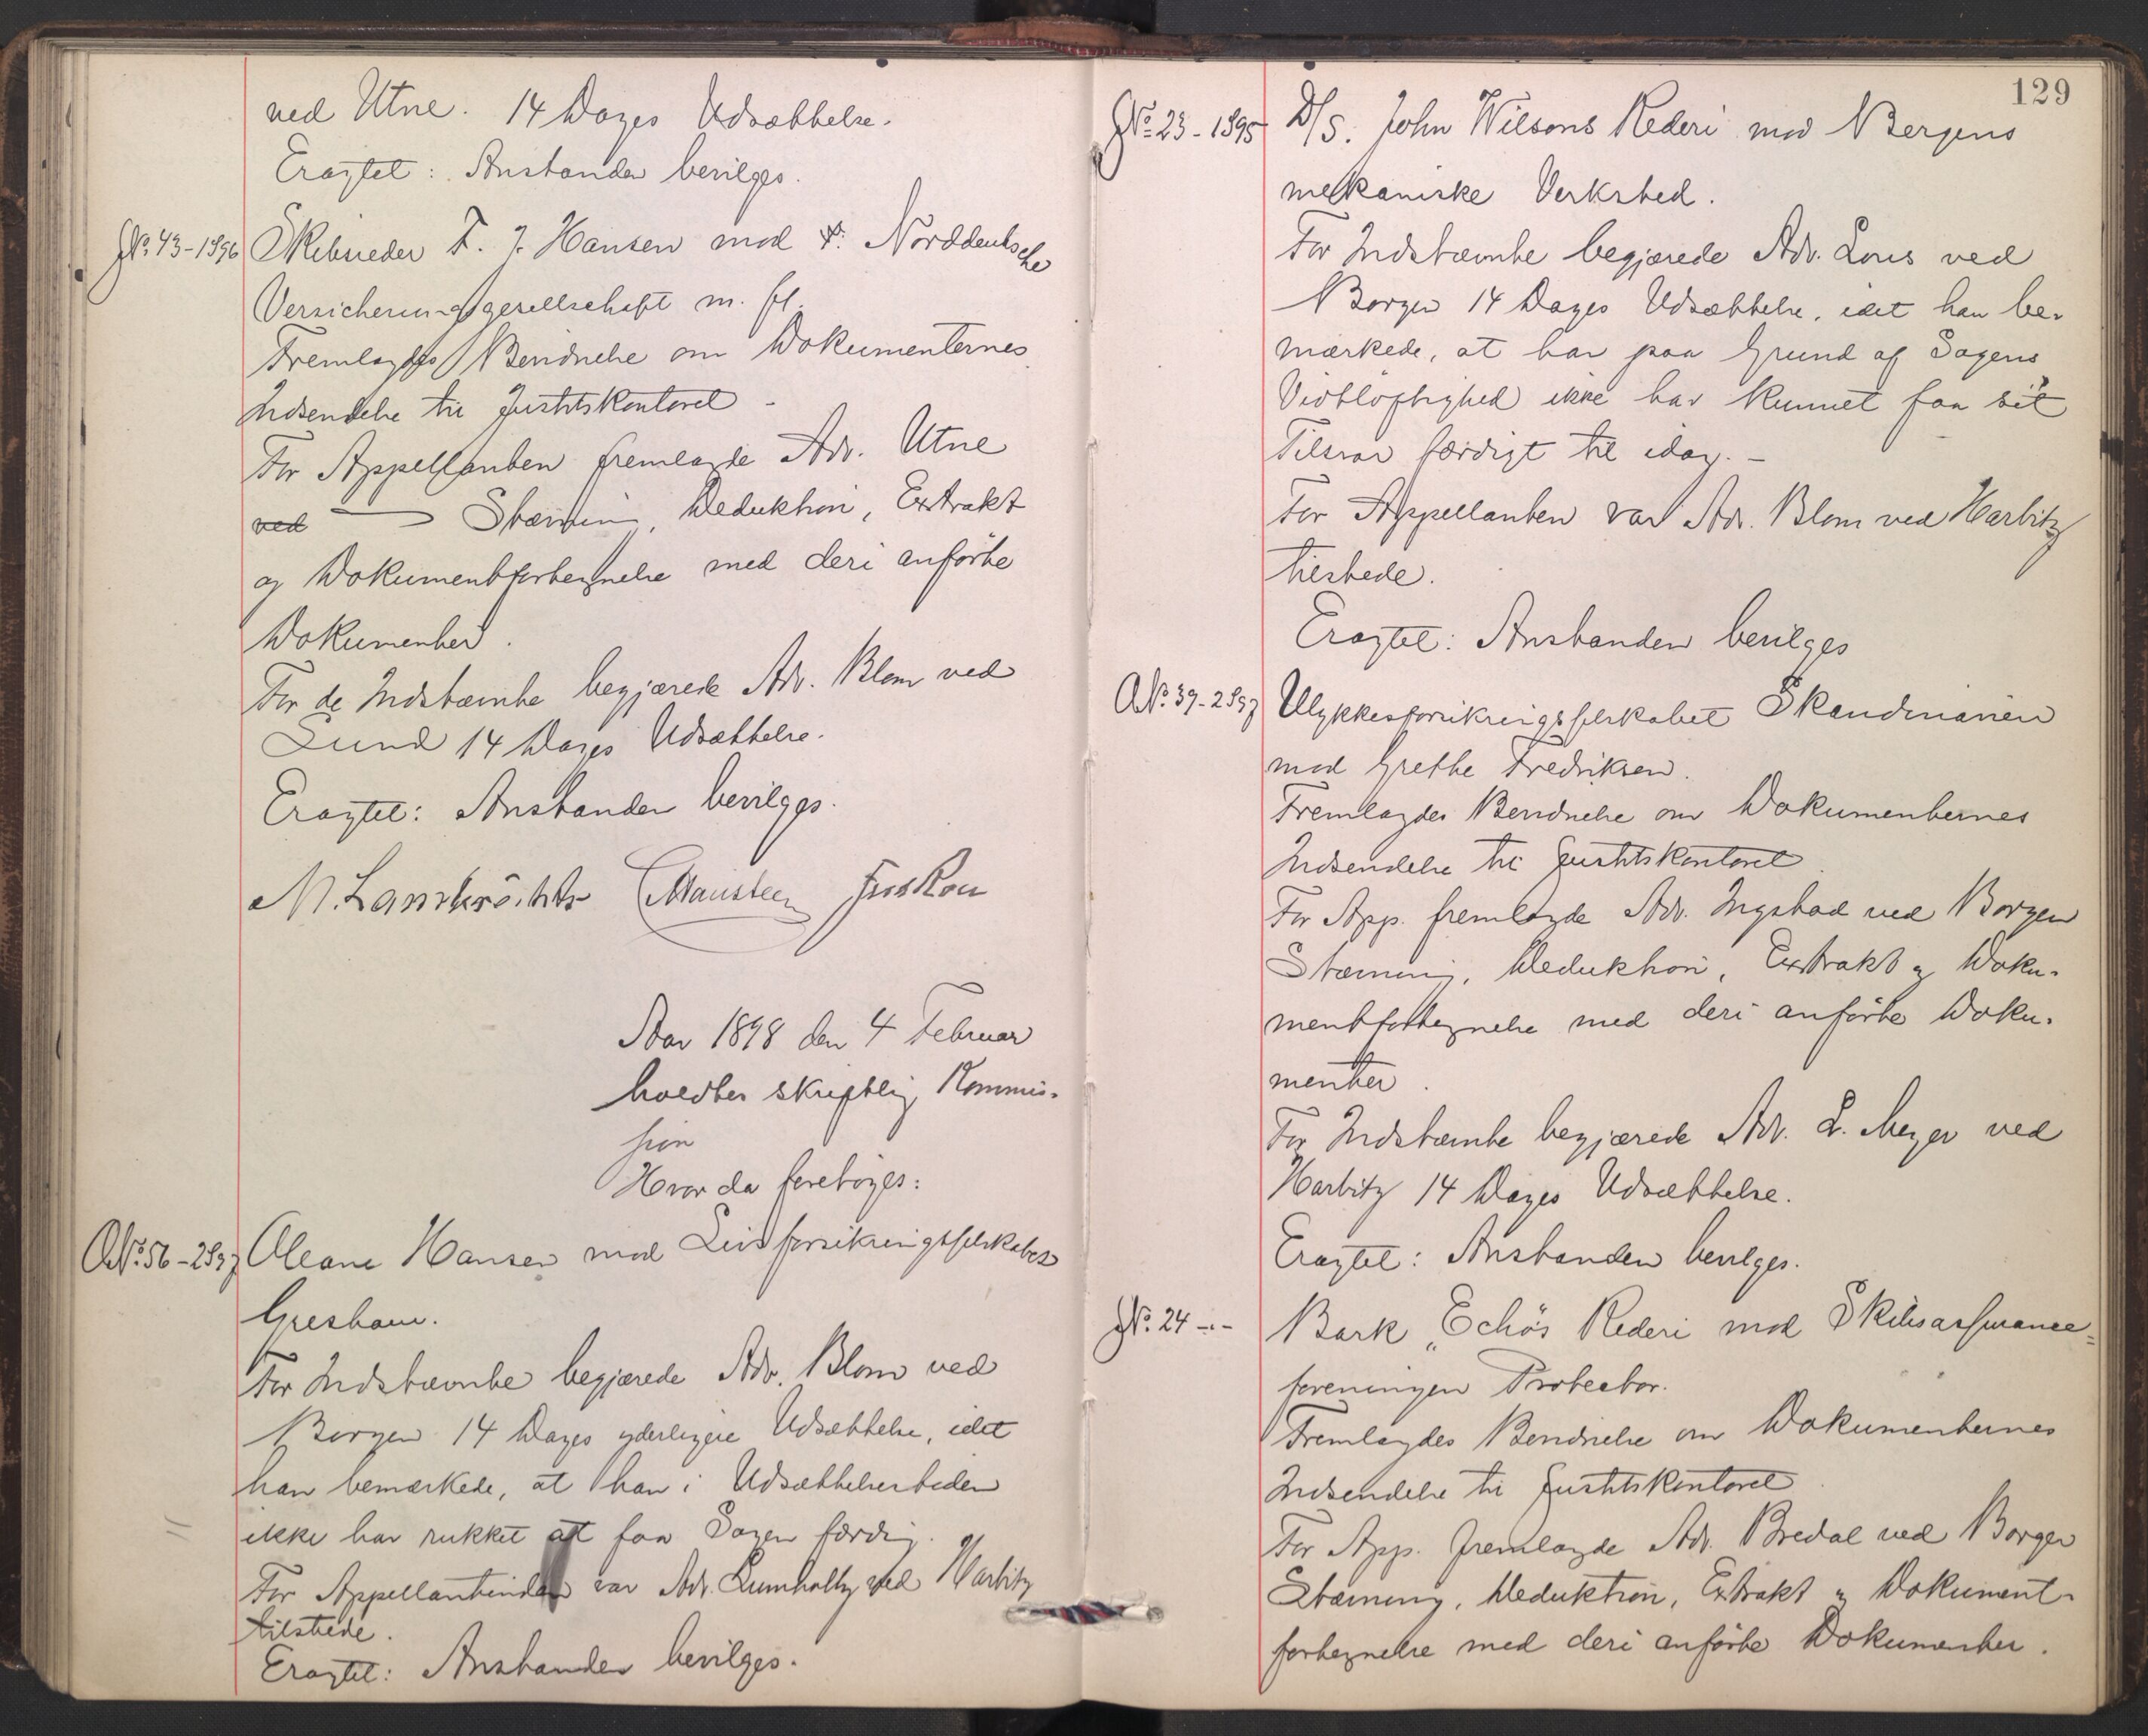 ved Utne. 14 Dages Udsættelse.
Eragtet: Anstanden bevilges.
JN<sup>o</sup>. 43-1896 Skibsreder F. J. Hansen mod Norddeutsche
Versicherungsgesellschaft m. fl.
Fremlagdes Bevidnelse om Dokumenternes
Indsendelse til Justitskontoret -
For Appellanten fremlagde Adv. Utne
ved Stævning, Deduktion, Extrakt
og Dokumentfortegnelse med deri anførte
Dokumenter.
For de Indstævnte begjærede Adv. Blom ved
Lund 14 Dages Udsættelse.
Eragtet: Anstanden bevilges.
Aar 1898 den 4 Februar
holdtes skriftlig Kommis-
sion
Hvor da foretoges:
N<sup>o</sup>. 56-2897 Oleane Hansen mod Livsforsikringsselskabet
Gresham.
For Indstævnte begjærede Adv. Blom ved
Borgen 14 Dages yderligere Udsættelse, idet
han bemærkede, at han i Udsættelsestiden
ikke har rukket at faa Sagen færdig.
For Appellantinden var Adv. Lumholtz ved Harbitz
tilstede.
Eragtet: Anstanden bevilges.
129
JN<sup>o</sup>. 23-1895 D/S. John Wilsons Rederi mod Bergens
mekaniske Verksted.
For Indstævnte begjærede Adv. Lous ved
Borgen 14 Dages Udsættelse, idet han be-
mærkede, at han paa Grund af Sagens
Vidtløftighed ikke har kunnet faa sit
Tilsvar færdigt til idag. -
For Appellanten var Adv. Blom ved Harbitz
tilstede.
Eragtet: Anstanden bevilges
N<sup>o</sup>. 39-2897 Ulykkesforsikringsselskabet Skandinavien
mod Grethe Fredriksen.
Fremlagdes Bevidnelse om Dokumenternes
Indsendelse til Justitskontoret.
For App. fremlagde Adv. Ingstad ved Borgen
Stævning, Deduktion, Extrakt og Doku-
mentfortegnelse med deri anførte Doku-
menter.
For Indstævnte begjærede Adv. L. Meyer ved
Harbitz 14 Dages Udsættelse.
Eragtet: Anstanden bevilges.
JN<sup>o</sup>. 24 -"- Bark "Echo's Rederi mod Skibsassurance-
foreningen Protector.
Fremlagdes Bevidnelse om Dokumenternes
Indsendelse til Justitskontoret
For App. fremlagde Adv. Bredal ved Borgen
Stævning, Deduktion, Extrakt og Dokument-
fortegnelse med deri anførte Dokumenter.